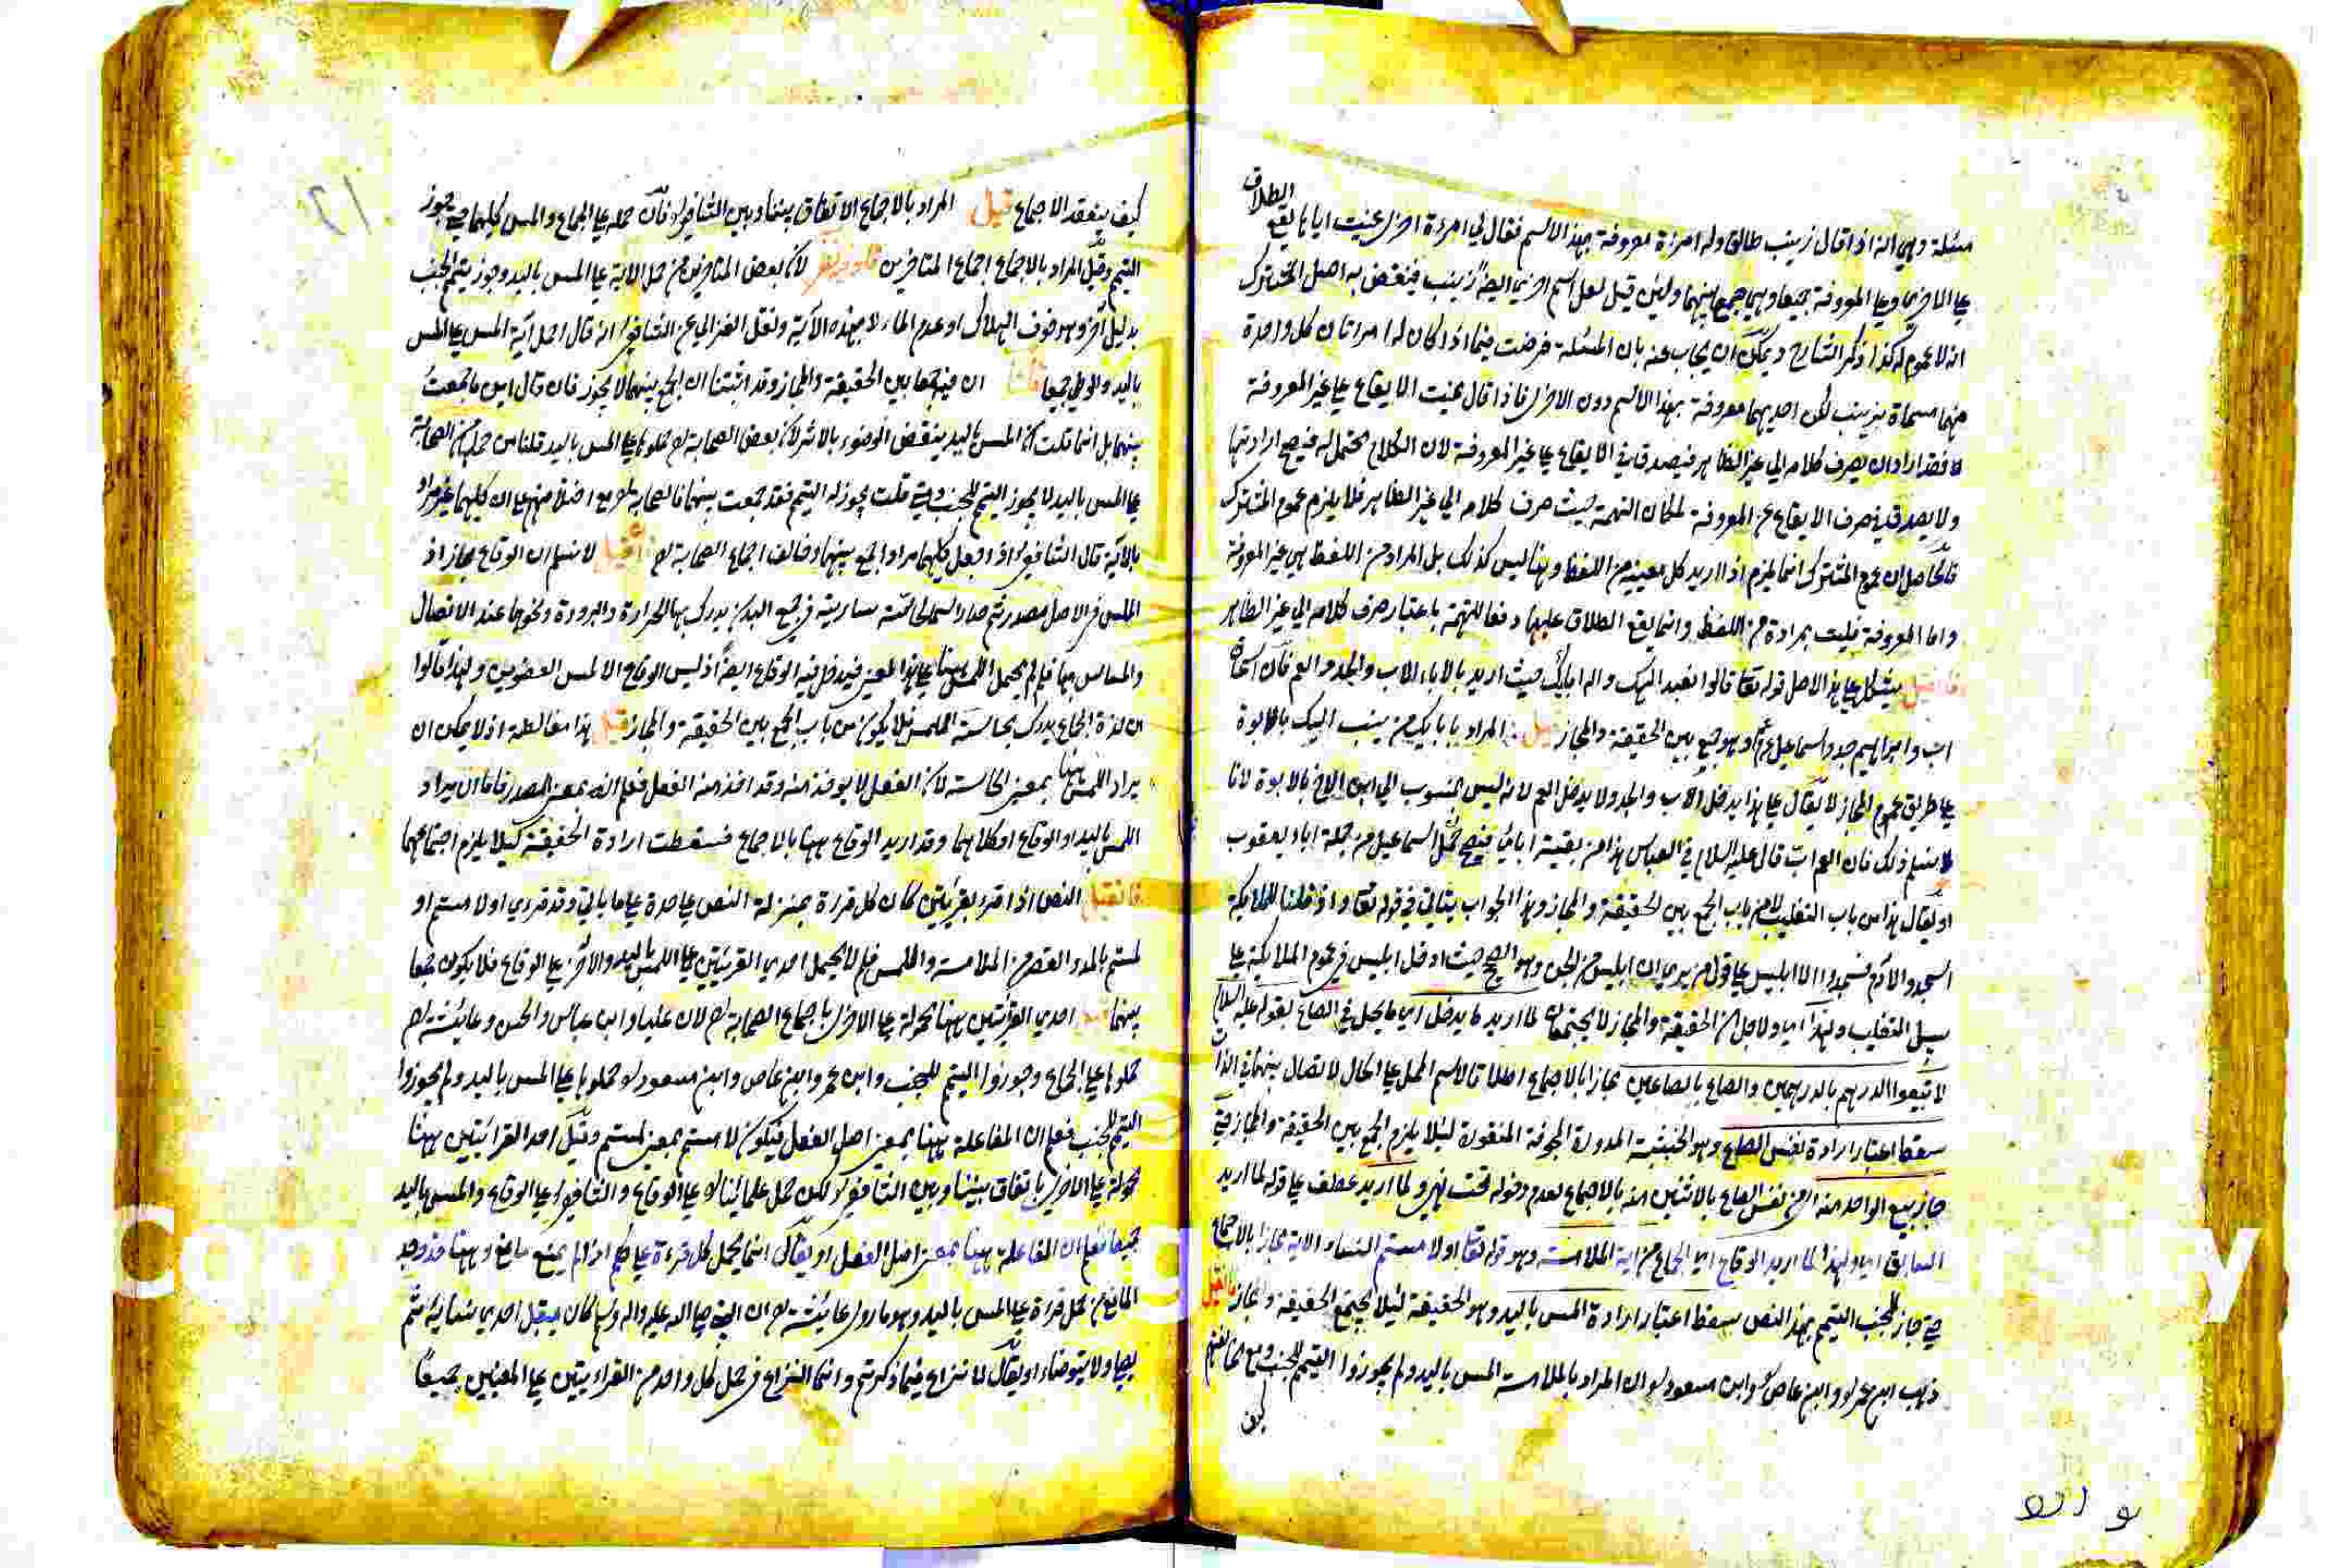 الطلاق
مسئلة وهي انه اذا قال زينب طالق وله امرءة معروفة بهذا الاسم فقال لي امرءة اخرى عنيت اياها يقع
على الاخرى وعلى المعروفة جميعا وهي جمع بينهما ولئن قيل لعل اسم اخرى ايضا زينب فينقض به اصل المشترك
انه لا عموم له كذا ذكر الشارح ويمكن ان يجاب عنه بان المسئلة فرضت فيما اذا كان له امرأتان كل واحدة
منهما مسماة بزينب لكن احديهما معروفة بهذا الاسم دون الاخرى فاذا قال عنيت الايقاع على غير المعروفة
فقد اراد ان يصرف كلامه الى غير الظاهر فيصدق في الايقاع على غير المعروفة لان الكلام محتمل له فيصح ارادتها
ولا يصدق في صرف الايقاع عن المعروفة لمكان التهمة حيث صرف كلامه الى غير الظاهر فلا يلزم عموم المشترك
فالحاصل ان عموم المشترك انما يلزم اذا اريد كل معنييه من اللفظ وهنا ليس كذلك بل المراد من اللفظ هي غير المعروفة
واما المعروفة فليست بمرادة من اللفظ وانما يقع الطلاق عليها دفعا للتهمة باعتبار صرف كلامه الى غير الظاهر
فان قيل يشكل على هذا الاصل قوله تعالى قالوا نعبد الهك واله ابائك حيث اريد بالاباء الاب والجد والعم فان اسحاق
اب وابراهيم جد واسماعيل عم وهو جمع بين الحقيقة والمجاز قيل المراد بابائك من ينسب اليك بالابوة
على طريق عموم المجاز لا يقال على هذا يدخل الاب والجد ولا يدخل العم لانه ليس بمنسوب الى ابن الاخ بالابوة لانا
لا نسلم ذلك فان العم اب قال عليه السلام في العباس هذا من بقية ابائي فيصح جعل اسماعيل من جملة اباء يعقوب
او يقال هذا من باب التغليب لا من باب الجمع بين الحقيقة والمجاز وهذا الجواب يتاتى في قوله تعالى واذ قلنا للملائكة
اسجدوا لادم فسجدوا الا ابليس على قول من يرى ان ابليس من الجن وهو الصحيح حيث ادخل ابليس في عموم الملائكة على
سبيل التغليب ولهذا اي ولاجل ان الحقيقة والمجاز لا يجتمعان لما اريد ما يدخل اي ما يحل في الصاع بقوله عليه السلام
لا تبيعوا الدرهم بالدرهمين والصاع بالصاعين مجازا بالاجماع اطلاقا لاسم المحل على الحال لاتصال بينهما في الذات
سقط اعتبار ارادة نفس الصاع وهو الخشبة المدورة المجوفة المنقورة لئلا يلزم الجمع بين الحقيقة والمجاز حتى
جاز بيع الواحد منه اي من نفس الصاع بالاثنين منه بالاجماع لعدم دخوله تحت نهي ولما اريد عطف على قوله لما اريد
السابق اي ولهذا لما اريد الوقاع اي الجماع من اية الملامسة وهو قوله تعالى او لامستم النساء الاية مجازا بالاجماع
حتى جاز للجنب التيمم بهذا النص سقط اعتبار ارادة المس باليد وهو الحقيقة لئلا يجتمع الحقيقة والمجاز فان قيل
ذهب ابن عمر وابن عاص وابن مسعود الى ان المراد بالملامسة المس باليد ولم يجوزوا التيمم للجنب ومع مخالفتهم
كيف
كيف ينعقد الاجماع قيل المراد بالاجماع الاتفاق بيننا وبين الشافعي فان حمله على الجماع والمس كليهما حتى جوز
التيمم وقيل المراد بالاجماع اجماع المتاخرين لان بعض المتاخرين من حمل الاية على المس باليد وجوز تيمم الجنب
بدليل آخر وهو خوف الهلاك او عدم الماء لا بهذه الآية ونقل الغزالي عن الشافعي انه قال احمل آية المس على المس
باليد والوطي جميعا قلنا ان فيه جمعا بين الحقيقة والمجاز وقد اثبتنا ان الجمع بينهما لا يجوز فان قال اين ما جمعت
بينهما بل انما قلت ان المس باليد ينقض الوضوء بالاثر لان بعض الصحابة حملوها على المس باليد قلنا من حملها من الصحابة
على المس باليد لا يجوز التيمم للجنب وحتى قلت يجوز له التيمم فقد جمعت بينهما فالصحابة مع اختلافهم على ان كليهما غير مراد
بالآية قال الشافعي اذا جعل كليهما مرادا جمع بينهما وخالف اجماع الصحابة لا نسلم ان الوقاع مجاز اذ
اللمس في الاصل مصدر ثم صار اسما لحاسة سارية في جميع البدن يدرك بها الحرارة والبرودة ونحوها عند الاتصال
والمساس بها فلم لم يحمل اللمس ههنا على هذا المعنى فيدخل فيه الوقاع ايضا اذ ليس الوقاع الا لمس العضوين ولهذا قالوا
ان لذة الجماع يدرك بحاسة اللمس فلا يكون من باب الجمع بين الحقيقة والمجاز قيل هذا مغالطة اذ لا يمكن ان
يراد اللمس ههنا بمعنى الحاسة لان الفعل لا يوخذ منه وقد اخذ منه الفعل فعلم انه بمعنى المصدر فاما ان يراد
اللمس باليد او الوقاع او كلاهما وقد اريد الوقاع ههنا بالاجماع فسقطت ارادة الحقيقة كيلا يلزم اجتماعهما
فان قيل النص اذا قرء بقرءتين كان كل قرءة بمنزلة النص على حدة على ما ياتي وقد قرئ او لامستم او
لمستم بالمد والقصر من الملامسة واللمس فلم لا يحمل احدى القرءتين على اللمس باليد والاخرى على الوقاع فلا يكون جمعا
بينهما احدى القرءتين ههنا محمولة على الاخرى باجماع الصحابة لان عليا وابن عباس والحسن وعائشة
حملوها على الجماع وجوزوا التيمم للجنب وابن عمر وابن عاص وابن مسعود حملوها على المس باليد ولم يجوزوا
التيمم للجنب فعلم ان المفاعلة ههنا بمعنى اصل الفعل فيكون لامستم بمعنى لمستم وقيل احد القرائتين ههنا
محمولة على الاخرى باتفاق بيننا وبين الشافعي لكن حمل علمائنا على الوقاع والشافعي على الوقاع والمس باليد
جميعا فعلم ان المفاعلة ههنا بمعنى اصل الفعل او يقال انما يحمل كل قرءة على حكم اذا لم يمنع مانع وههنا قد وجد
المانع من حمل قرءة على المس باليد وهو ما روى عائشة ان النبي صلى الله عليه واله وسلم كان يقبل احدى نسائه ثم
يصلي ولا يتوضاء او يقال لا نزاع فيما ذكرتم وانما النزاع في حمل كل واحد من القراءتين على المعنيين جميعا